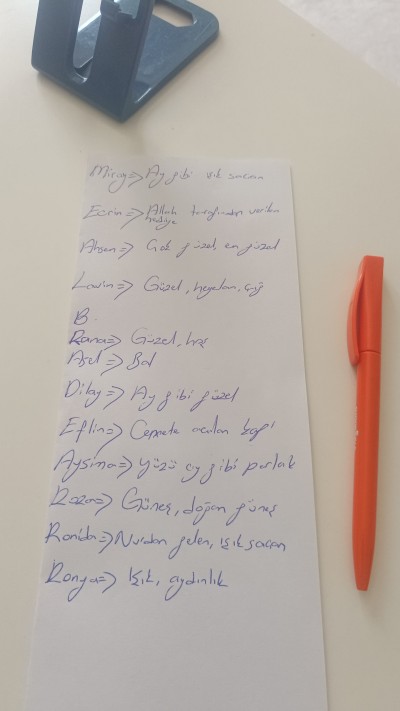 Miray => Ay gibi ışık saçan
Ecrin => Allah tarafından verilen
hediye
Ahsen => Çok güzel, en güzel
Lavin => Güzel, heyelan, çığ
B
Rana => Güzel, hoş
Asel => Bal
Dilay => Ay gibi güzel
Eflin => Cennete açılan kapı
Aysima => yüzü ay gibi parlak
Roza => Güneş, doğan güneş
Ronida => Nurdan gelen, ışık saçan
Ronya => Işık, aydınlık